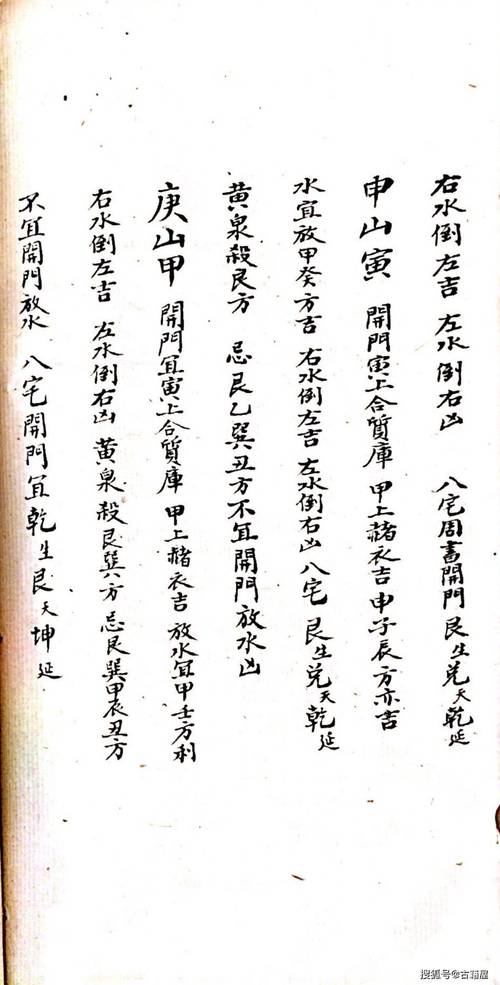 右水倒左吉 左水倒右凶 八宅周書開門艮生兌天乾延
申山寅 開門寅上合質庫 甲上赭衣吉申子辰方亦吉
水宜放甲癸方吉 右水倒左吉左水倒右凶八宅 艮生兌天乾延
黄泉殺艮方 忌艮乙巽丑方不宜開門放水凶
庚山甲 開門宜寅上合質庫 甲上赭衣吉 放水宜甲壬方利
右水倒左吉 左水倒右凶 黄泉殺艮巽方 忌艮巽甲辰丑方
不宜開門放水 八宅開門宜乾生艮天坤延
搜狐号@古籍屋